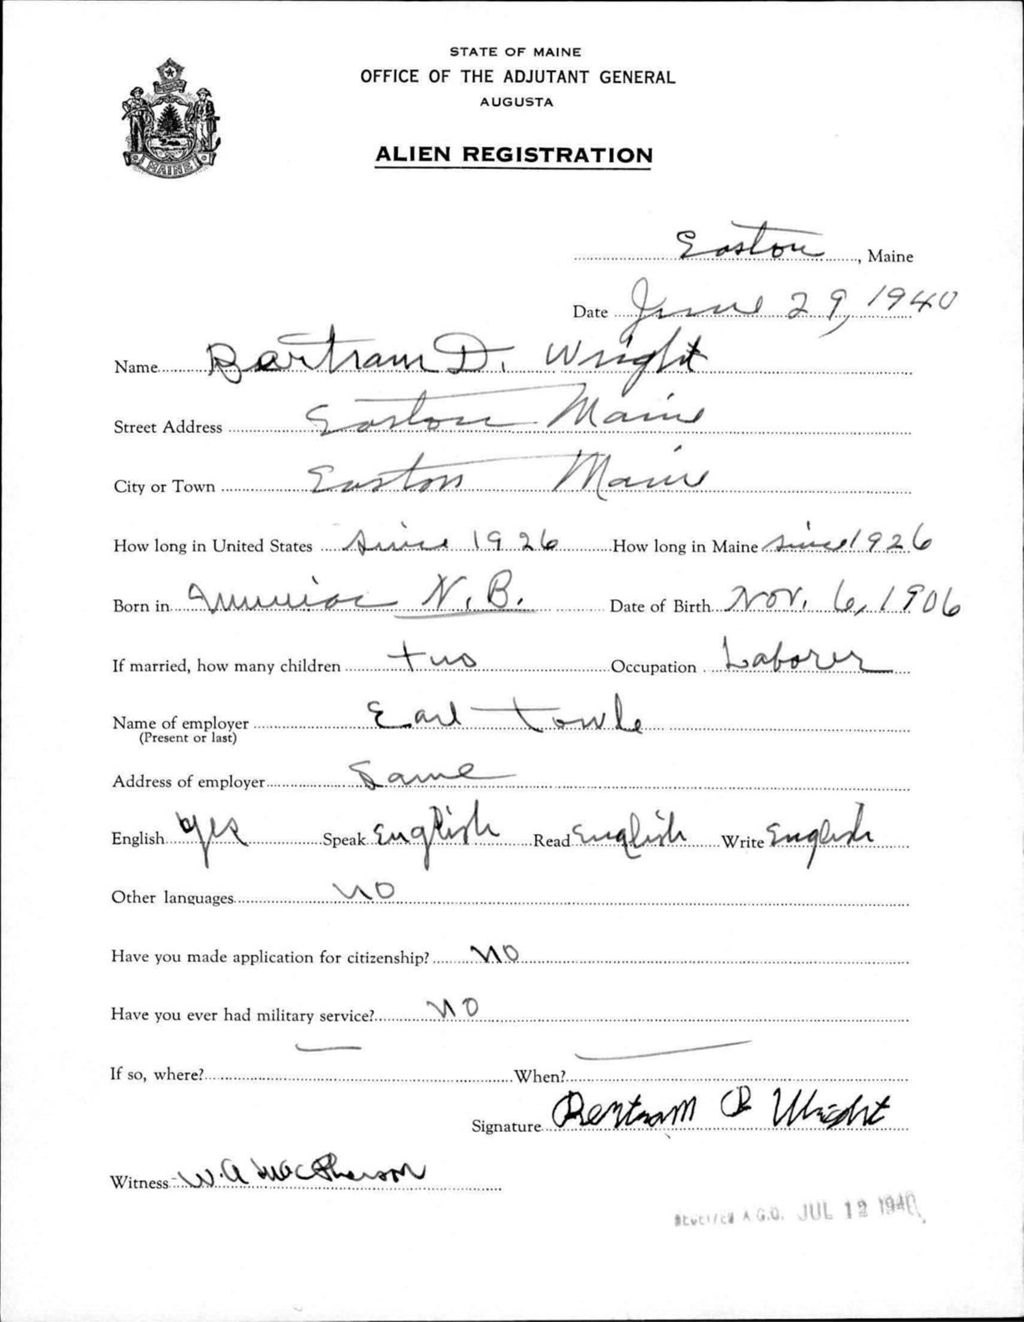 STATE OF MAINE
OFFICE OF THE ADJUTANT GENERAL
AUGUSTA
ALIEN REGISTRATION
MAINE
Easton, Maine
Date June 29, 1940
Name Bartram D. Wright
Street Address Easton Maine
City or Town Easton Maine
How long in United States Since 1926 How long in Maine Since 1926
Born in N.B. Date of Birth Nov. 6, 1906
If married, how many children two Occupation Laborer
Name of employer Earl Towle
(Present or last)
Address of employer Same
English Yes Speak English Read English Write English
Other languages no
Have you made application for citizenship? no
Have you ever had military service? no
If so, where? — When? —
Signature Bertram D Wright
Witness W. A MacPherson
RECEIVED A.G.O. JUL 12 1940